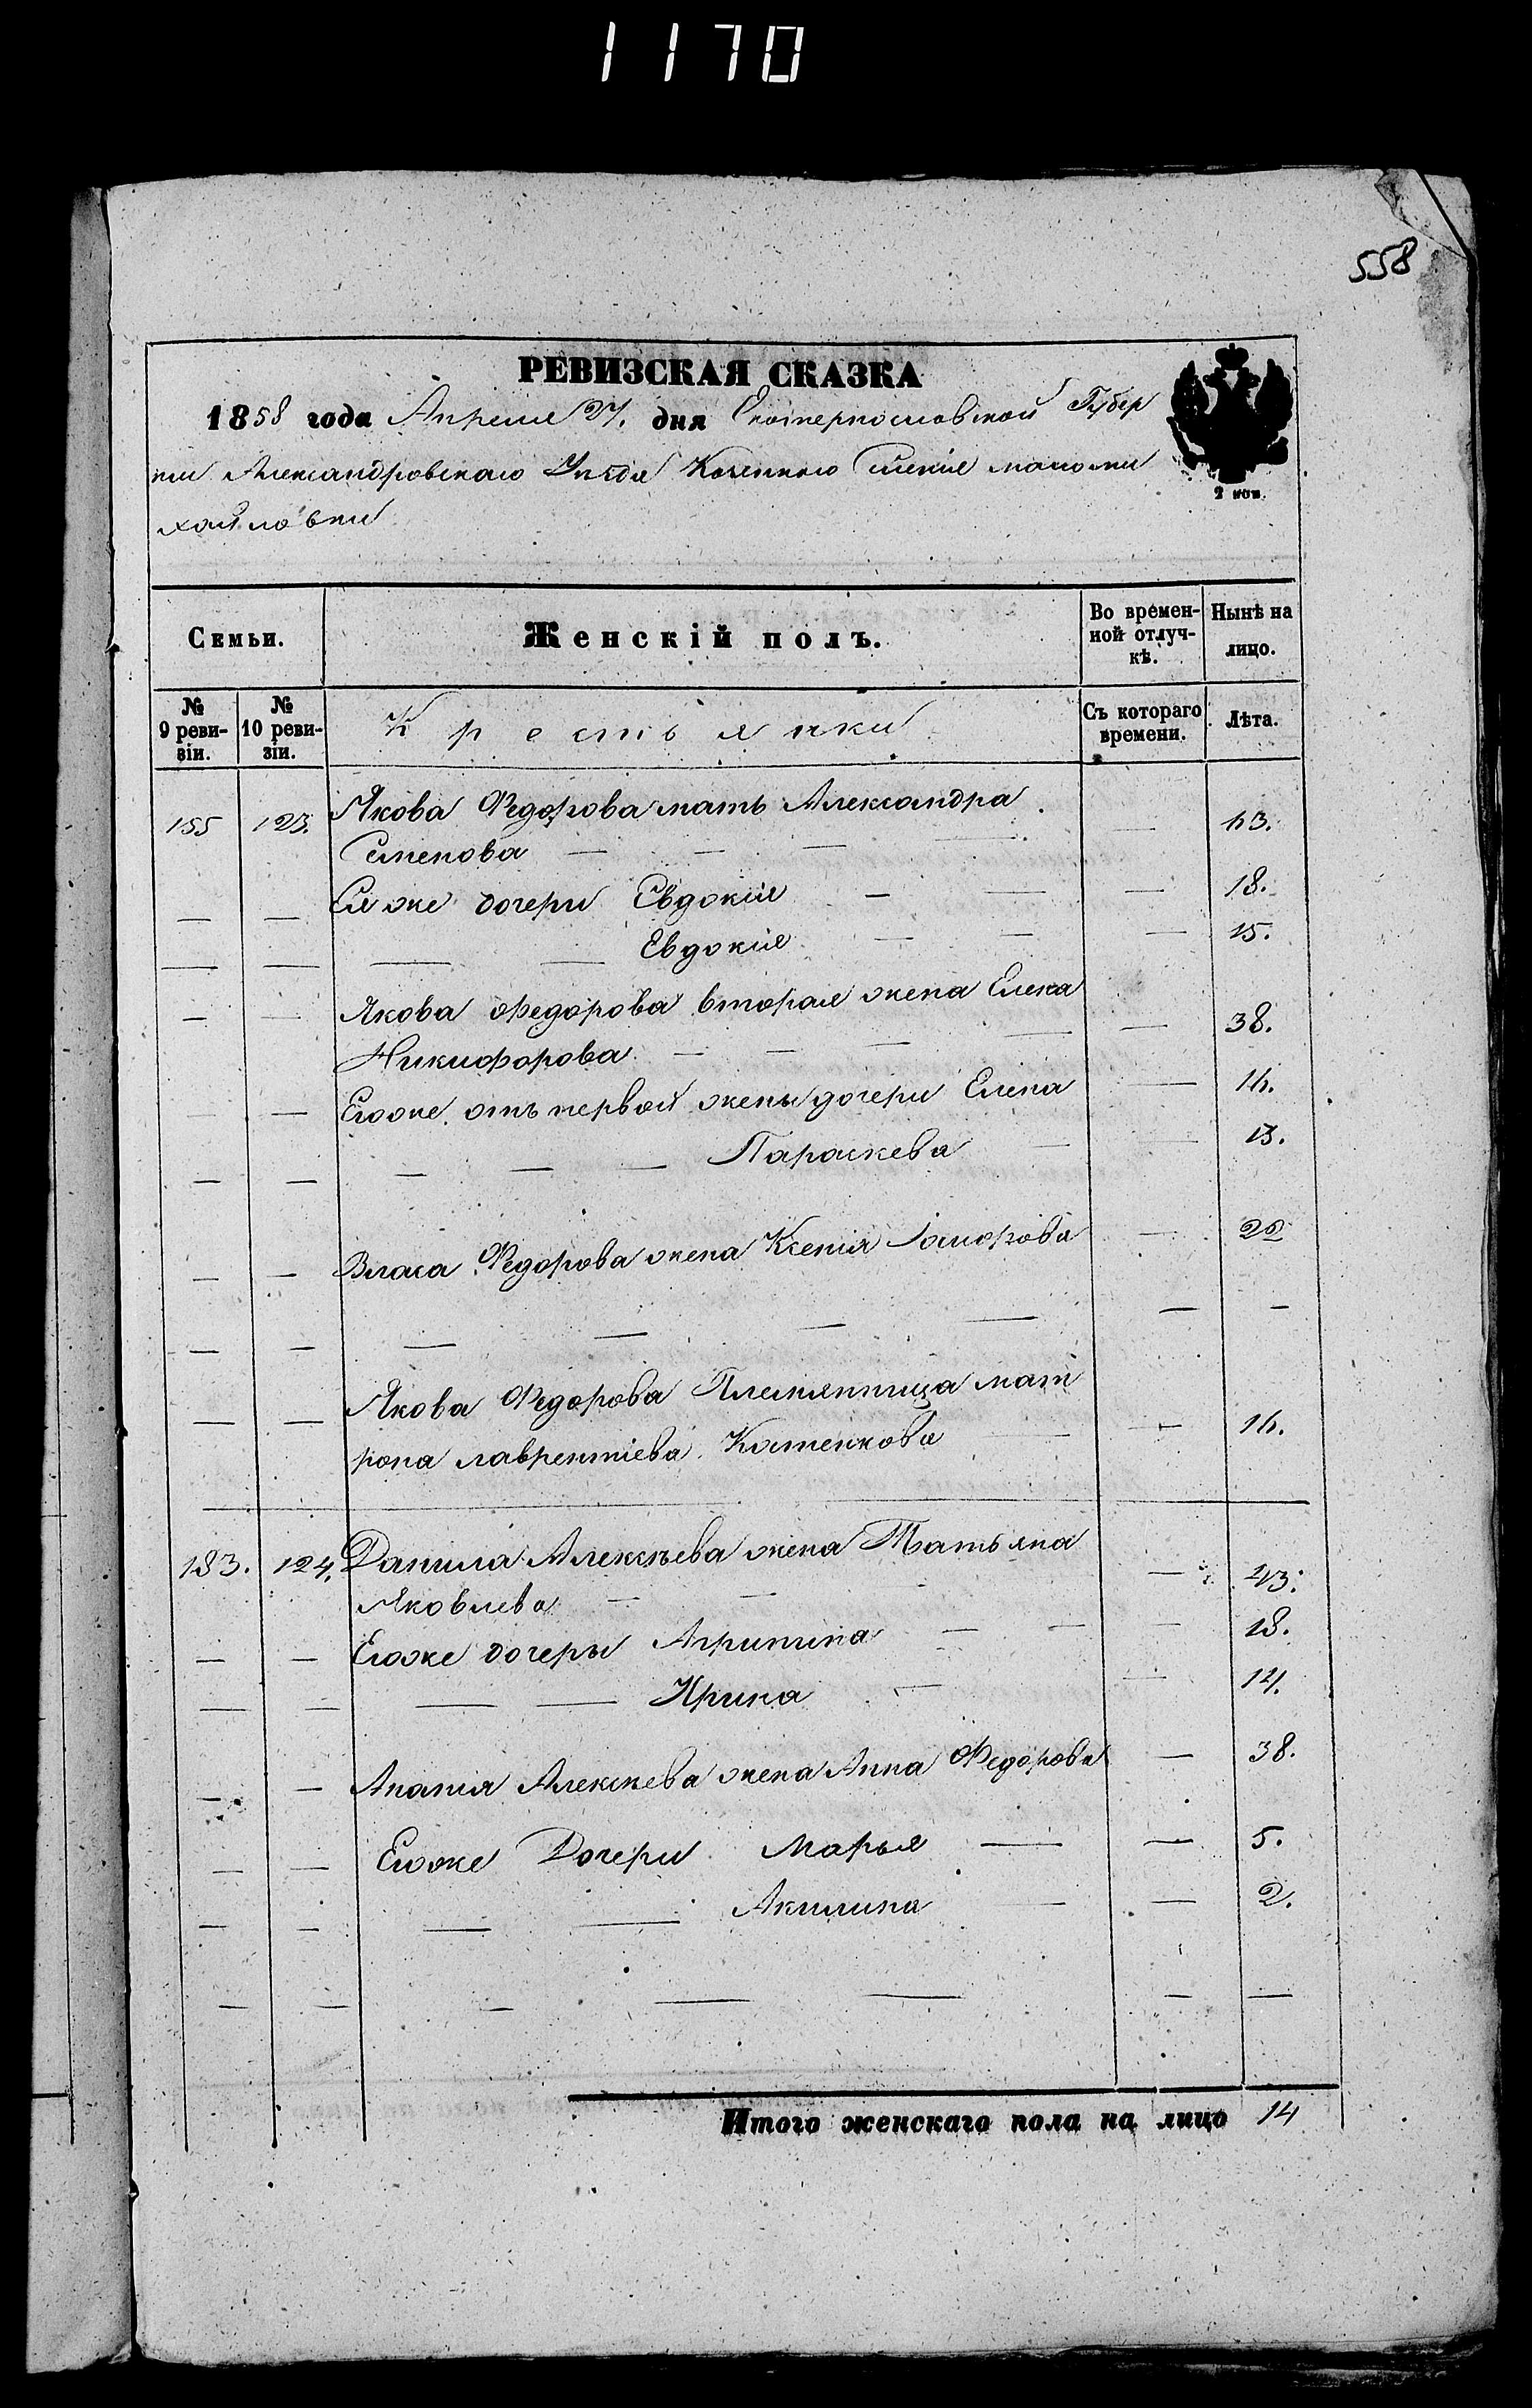 1170
558
РЕВИЗСКАЯ СКАЗКА
1858 года Апреля 27. дня Екатеринославской Губер
нии Александровскаго Уезда Казеннаго Селенія маломи
хайловки
2 коп.
Семьи.
Женскій полъ.
Во времен-
ной отлуч-
кѣ.
Нынѣ на
лицо.
№
9 реви-
зіи.
№
10 реви-
зіи.
Крестьянки
Съ котораго
времени.
Лѣта.
155 123. Якова Федорова мать Александра
Семенова — — — — 63.
— — Ея же дочери Евдокія — — — 18.
— — — — Евдокія — — — 15.
— — Якова Федорова вторая жена Елена
Никифорова — — — — — 38.
— Егоже отъ первой жены дочери Елена — 16.
— — — — — Параскева — — 13.
— — Власа Федорова жена Ксенія —
— — — — — — — —
— — Якова Федорова Племянница мат
рона лаврентіева Костенкова — — 16.
183. 124. Данила Алексѣева жена Татьяна
Яковлева — — — 43.
— — Егоже дочеры Агрипина — — — 18.
— — — — Ирина — — 14.
— — Анатія Алексѣева жена Анна Федорова — 38.
— — Егоже Дочери Марья — — 5.
— — — — Акилина — — 2.
— — — — — — —
Итого женскаго пола на лицо 14